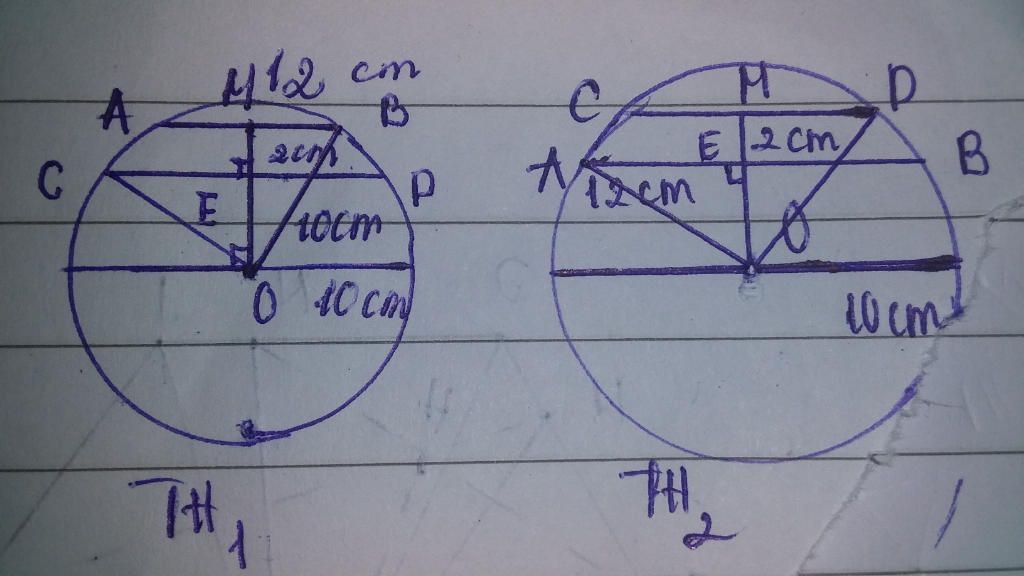 M 12 cm
A
B
2cm
C
D
E
10cm
O
10cm
TH1
M
C
D
E
2cm
A
B
12cm
O
10cm
TH2